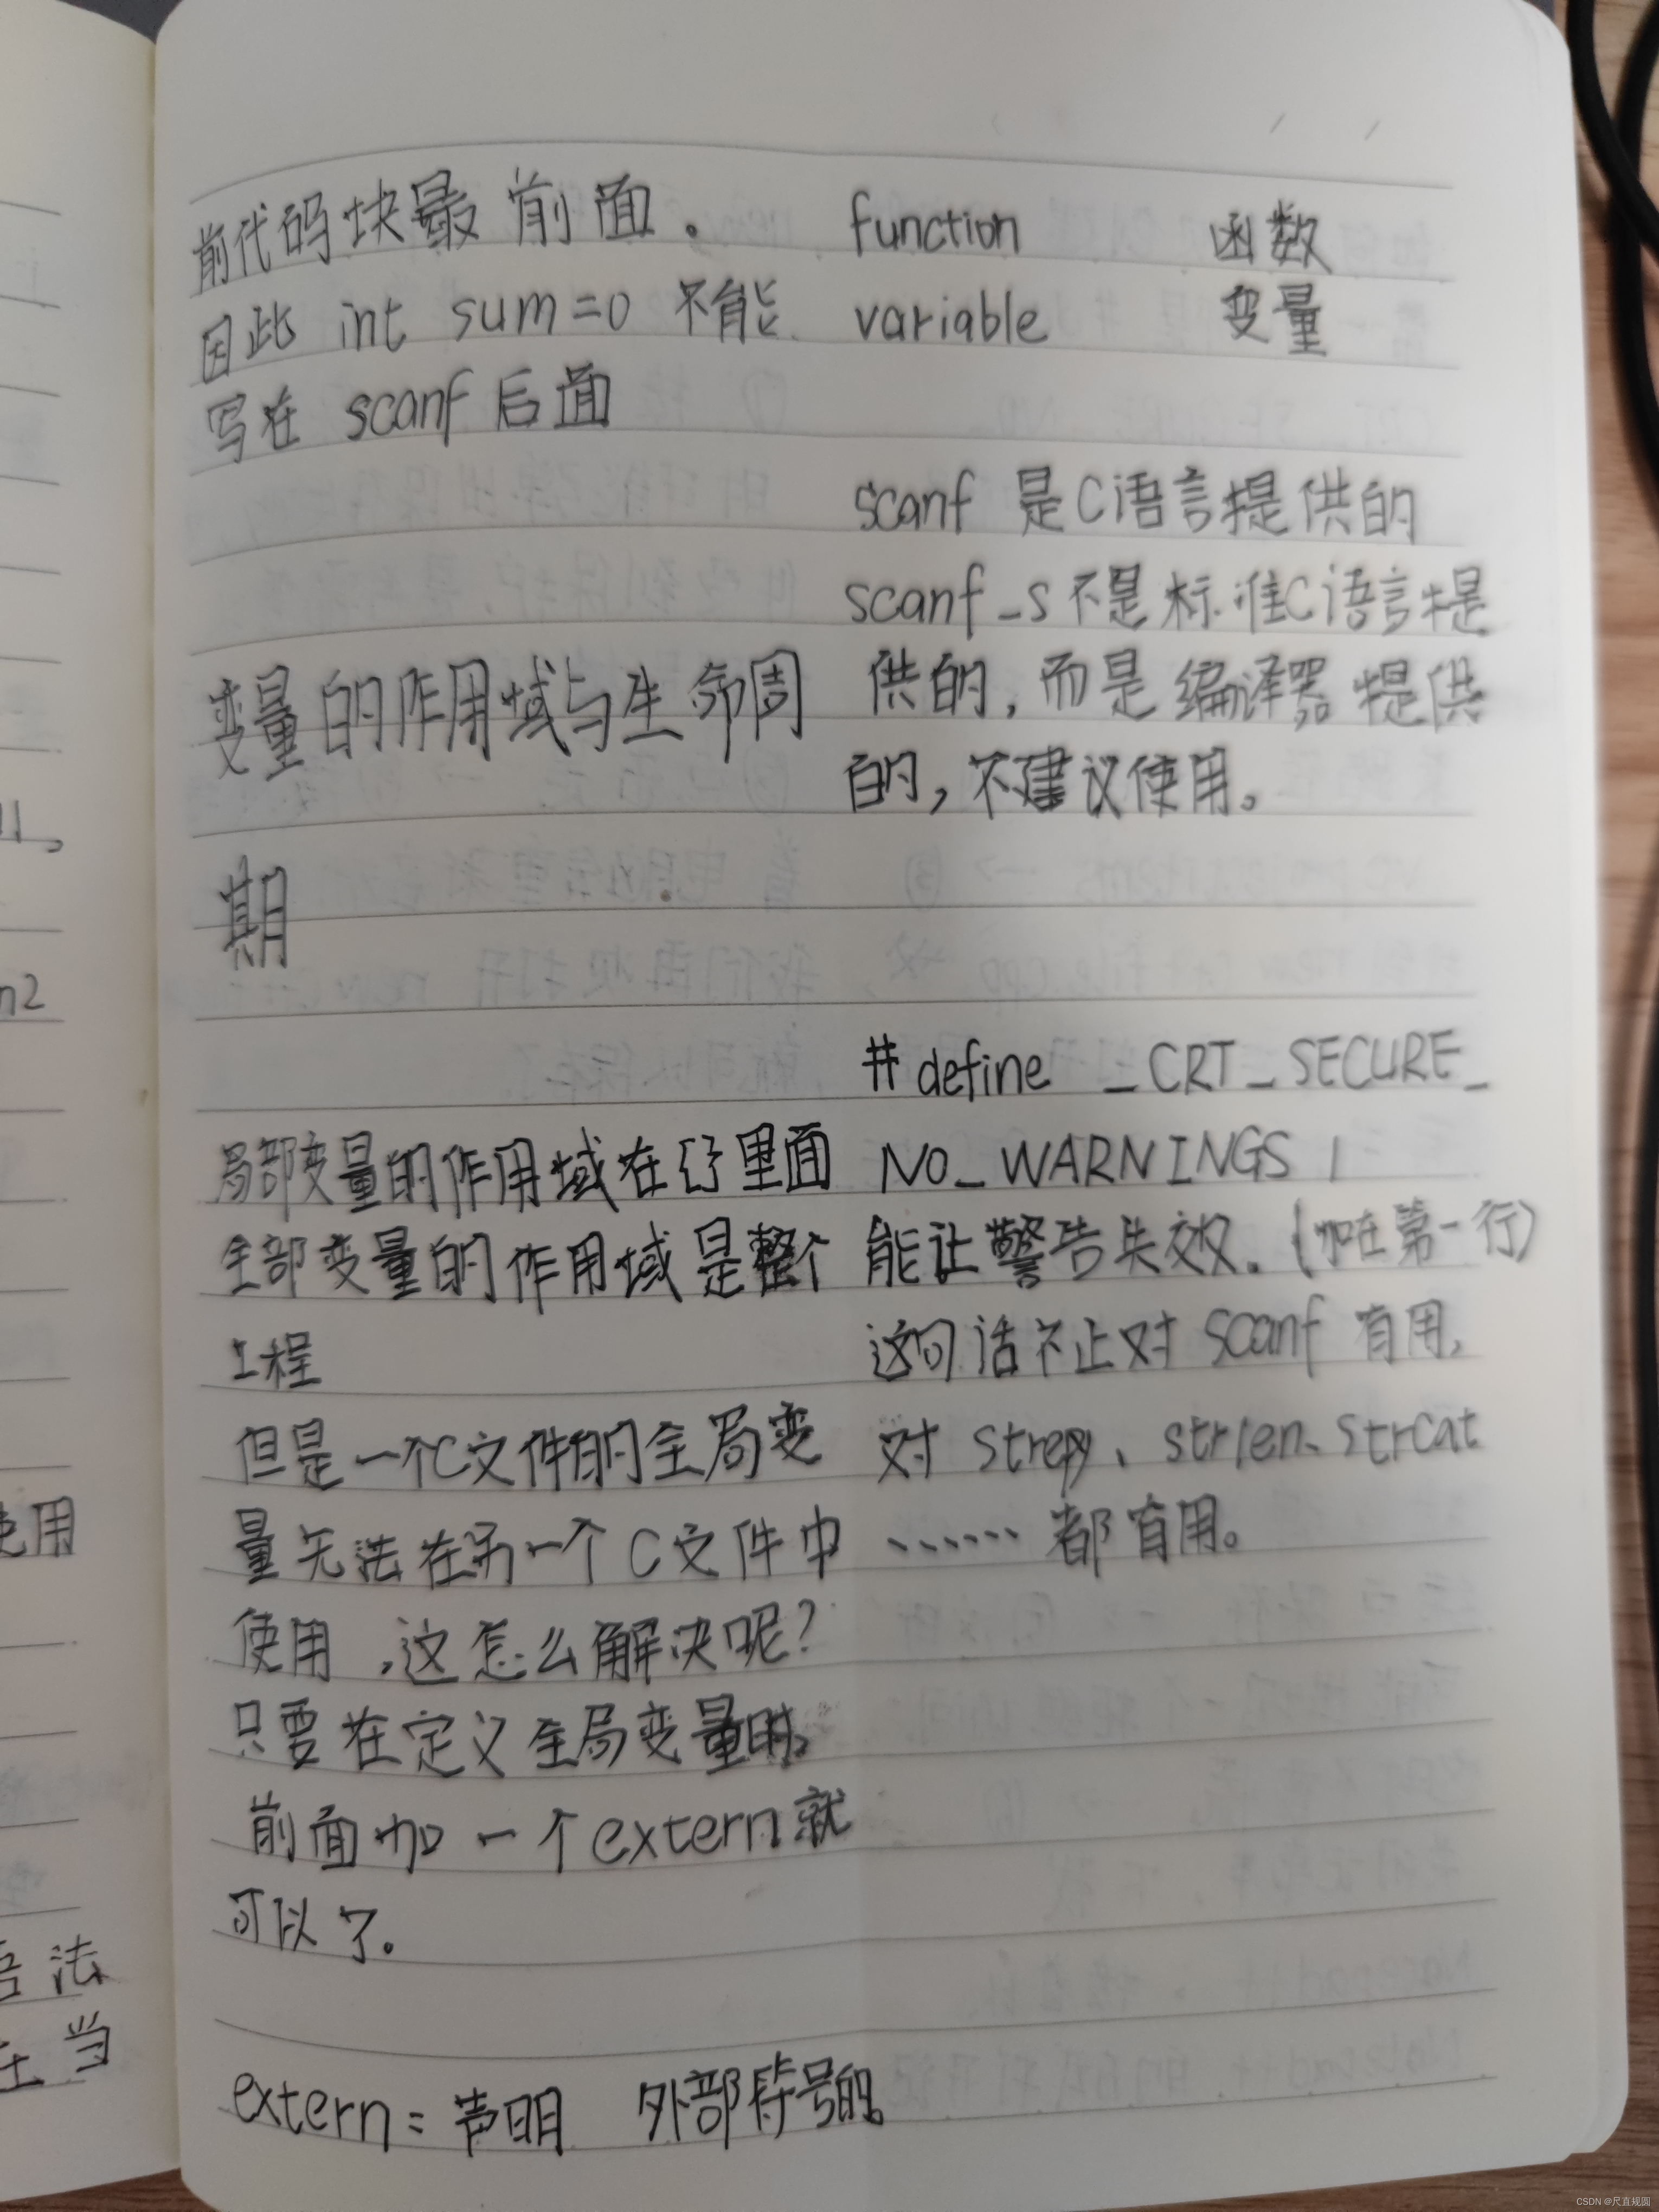 前代码块最前面。
因此 int sum=0 不能
写在 scanf 后面
变量的作用域与生命周
期
局部变量的作用域在{}里面
全部变量的作用域是整个
工程
但是一个C文件的全局变
量无法在另一个C文件中
使用,这怎么解决呢?
只要在定义全局变量时,
前面加一个extern就
可以了。
extern = 声明 外部符号的
function 函数
variable 变量
scanf 是C语言提供的
scanf_s不是标准C语言提
供的,而是编译器提供
的,不建议使用。
#define _CRT_SECURE_
NO_WARNINGS 1
能让警告失效.(加在第一行)
这句话不止对 scanf 有用,
对 strcpy、strlen、strcat
…… 都有用。
使用
语法
在当
n2
CSDN @尺直规圆